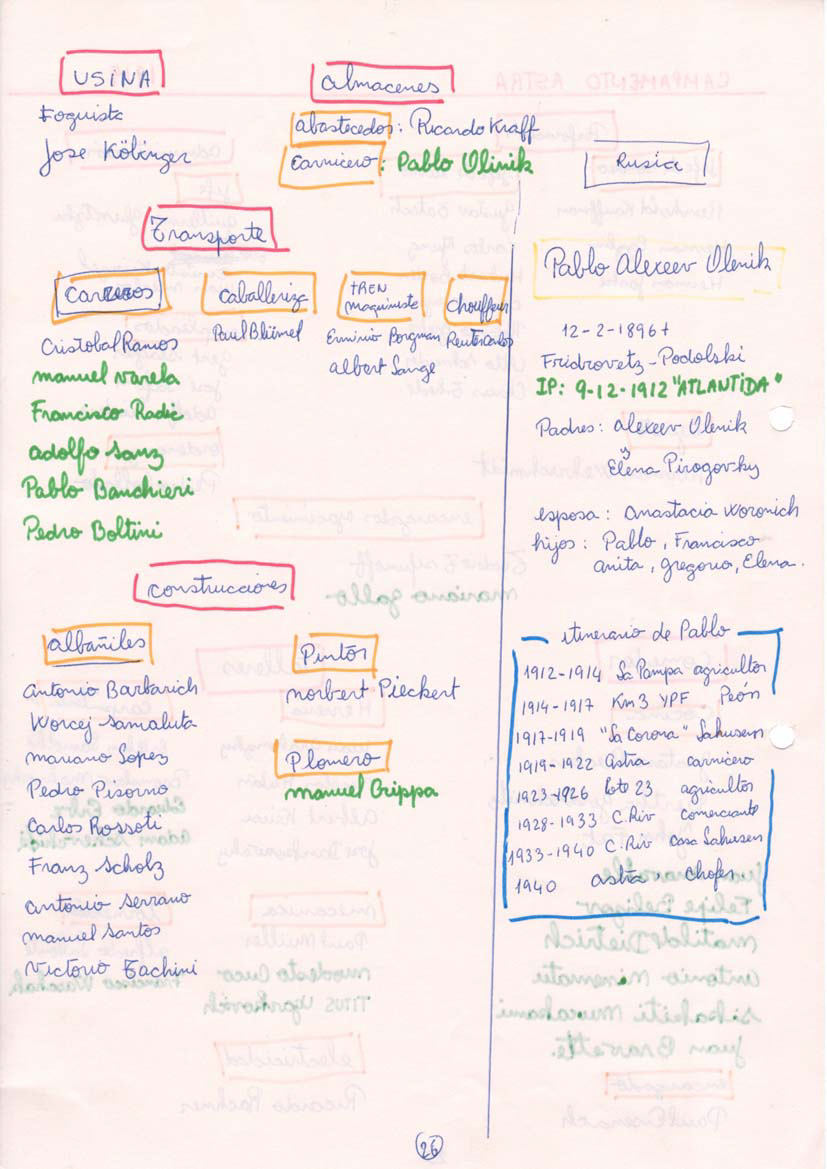 USINA
Foguista
Jose Kölinger
almacenes
abastecedos: Ricardo Kraff
carnicero: Pablo Olinik
Transporte
Carreros
Cristobal Ramos
manuel varela
Francisco Radic
adolfo sanz
Pablo Banchieri
Pedro Boltini
caballeriza
Paul Blümel
tREN
maquiniste
Erminio Borgman
albert Sange
chouffeur
Reuter Carlos
construcciones
albañiles
antonio Barbarich
Worcej Samaluta
mariano Lopez
Pedro Pisorno
Carlos Rossoti
Franz Scholz
antonio serrano
manuel santos
Victorio Tachini
Pintor
norbert Pieckert
Plomero
manuel Grippa
Rusia
Pablo Alexeev Olenik
12-2-1896 +
Fridrovetz - Podolski
IP: 9-12-1912 "ATLANTIDA"
Padres: Alexeev Olenik
y
Elena Pirogovky
esposa: Anastacia Woronich
hijos: Pablo, Francisco
anita, gregorio, Elena.
itinerario de Pablo
1912-1914 La Pampa agricultor
1914-1917 Km3 YPF Peón
1917-1919 "La Corona" Sahusen
1919-1922 Astra carnicero
1923-1926 Lote 23 agricultor
1928-1933 C.Riv comerciante
1933-1940 C.Riv Casa Sahusen
1940 astra Chofer
26